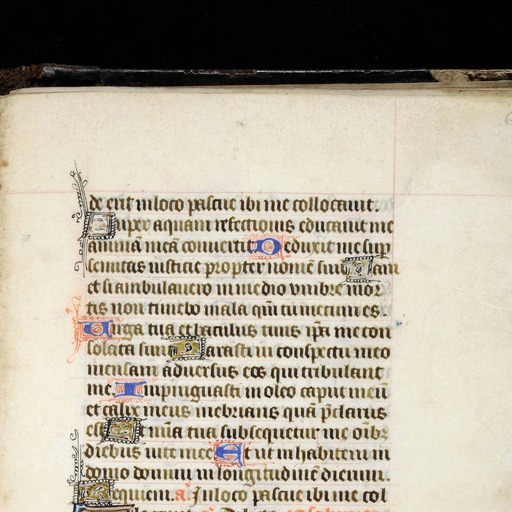 de erit in loco pascue ibi me collocauit.
Super aquam refectionis educauit me
animā meā conuertit Deduxit me sup
semitas iusticie propter nomē suū Nam
et si ambulauero in medio vmbre mor
tis non timebo mala qm̄ tu mecum es.
Uirga tua et baculus tuus ip̄a me con
solata sunt Parasti in conspectu meo
mensam aduersus eos qui tribulant
me. Impinguasti in oleo caput meū
et calix meus inebrians quā p̄clarus
est Et mīa tua subsequetur me oīb̄s
diebus uite mee Et ut inhabitem in
domo domini in longitudinē dierum.
Requiem. a. In loco pascue ibi me col